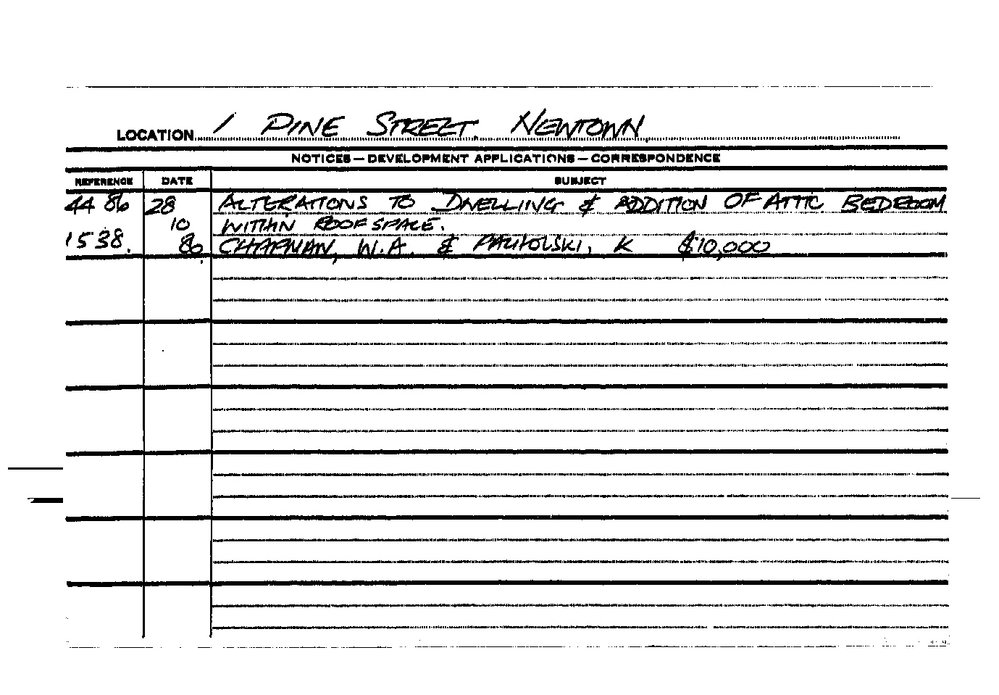 LOCATION 1 PINE STREET, NEWTOWN
NOTICES—DEVELOPMENT APPLICATIONS—CORRESPONDENCE
REFERENCE DATE SUBJECT
44 86 28 ALTERATIONS TO DWELLING & ADDITION OF ATTIC BEDROOM
10 WITHIN ROOF SPACE.
1538. 86. CHAPMAN, W.A. & K $10,000